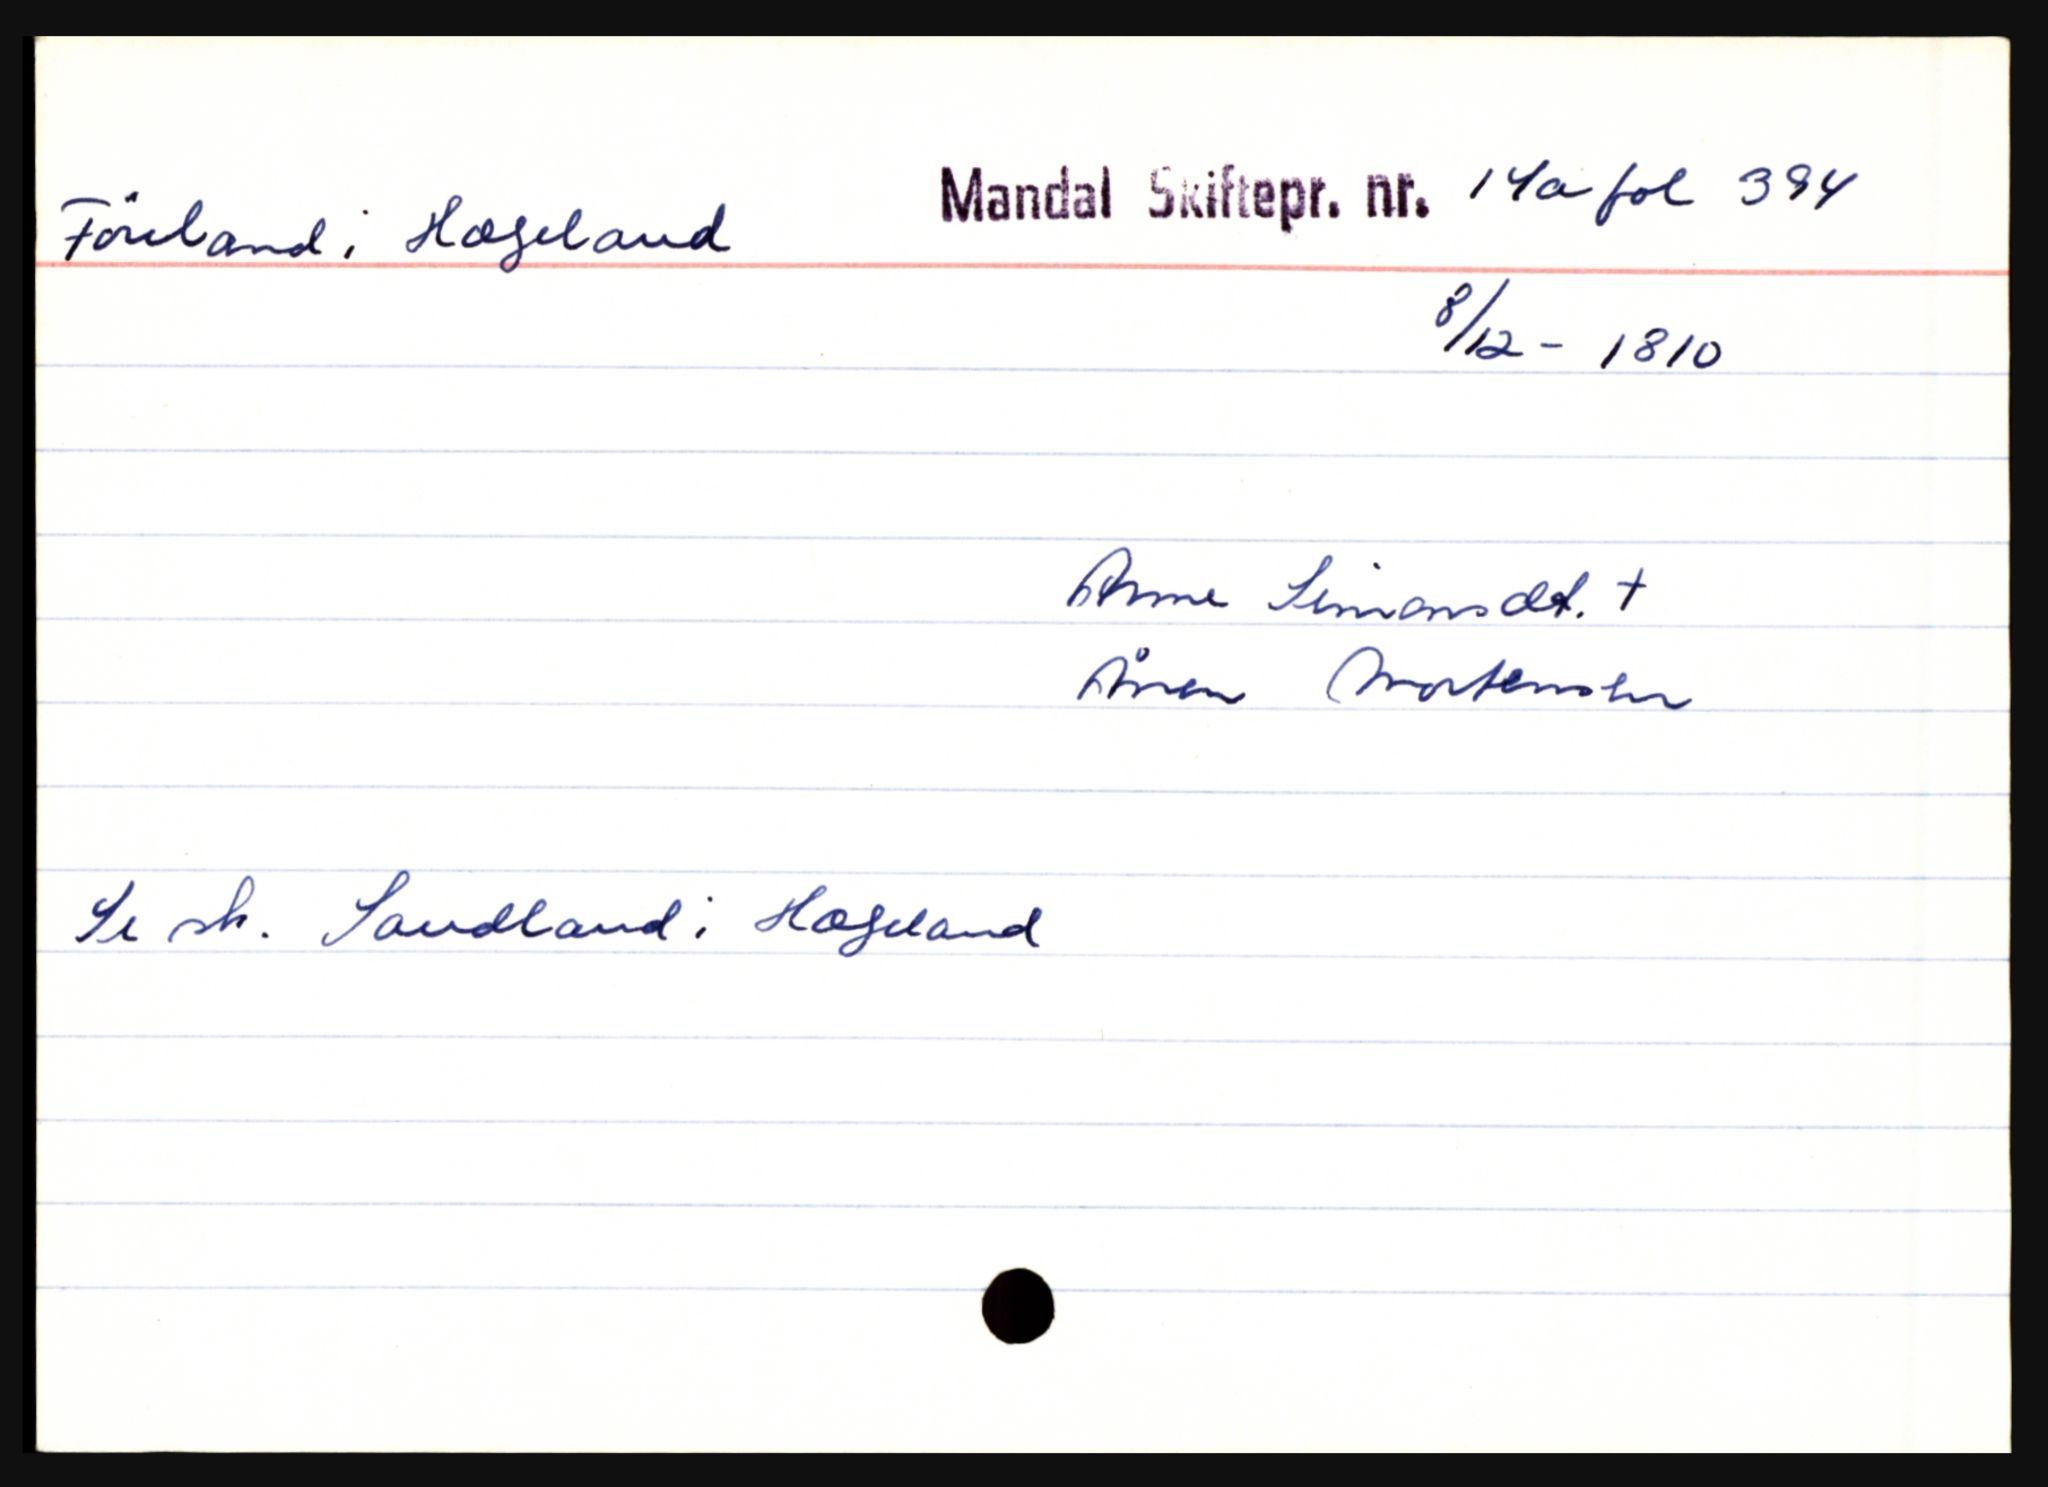 Föreland i Hægeland Mandal Skiftepr. nr. 14a fol 394
8/12 - 1810
Anne Simonsdt. +
Ånen Mortensen
Se sk. Sandland i Hægeland